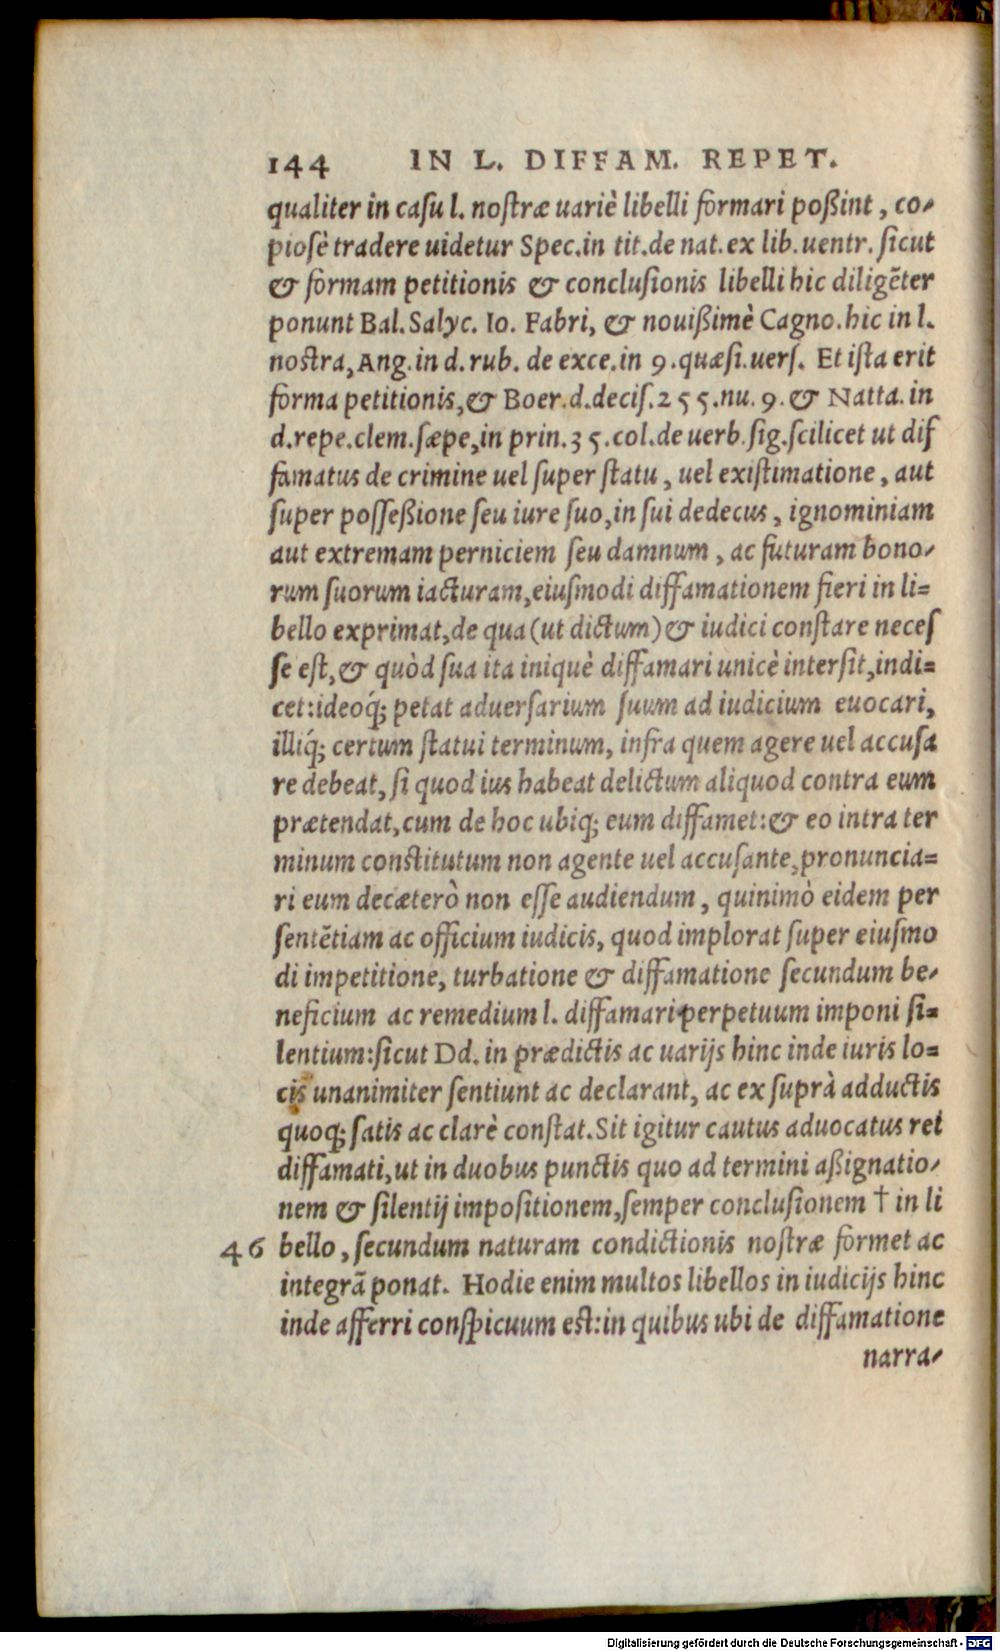 144 IN L. DIFFAM. REPET.
qualiter in casu l. nostræ uariè libelli formari poßint, co-
piosè tradere uidetur Spec. in tit. de nat. ex lib. uentr. sicut
& formam petitionis & conclusionis libelli hic diligẽter
ponunt Bal. Salyc. Io. Fabri, & nouißimè Cagno. hic in l.
nostra, Ang. in d. rub. de exce. in 9. quæsi. uers. Et ista erit
forma petitionis, & Boer. d. decis. 255. nu. 9. & Natta. in
d. repe. clem. sæpe, in prin. 35. col. de uerb. sig. scilicet ut dif
famatus de crimine uel super statu, uel existimatione, aut
super posseßione seu iure suo, in sui dedecus, ignominiam
aut extremam perniciem seu damnum, ac futuram bono-
rum suorum iacturam, eiusmodi diffamationem fieri in li=
bello exprimat, de qua (ut dictum) & iudici constare neces
se est, & quòd sua ita iniquè diffamari unicè intersit, indi=
cet: ideoq́; petat aduersarium suum ad iudicium euocari,
illiq́; certum statui terminum, infra quem agere uel accusa
re debeat, si quod ius habeat delictum aliquod contra eum
prætendat, cum de hoc ubiq; eum diffamet: & eo intra ter
minum constitutum non agente uel accusante, pronuncia=
ri eum decæterò non esse audiendum, quinimò eidem per
sentẽtiam ac officium iudicis, quod implorat super eiusmo
di impetitione, turbatione & diffamatione secundum be-
neficium ac remedium l. diffamari perpetuum imponi si=
lentium: sicut Dd. in prædictis ac uarijs hinc inde iuris lo=
cis unanimiter sentiunt ac declarant, ac ex suprà adductis
quoq; satis ac clarè constat. Sit igitur cautus aduocatus rei
diffamati, ut in duobus punctis quo ad termini aßignatio-
nem & silentij impositionem, semper conclusionem † in li
46 bello, secundum naturam condictionis nostræ formet ac
integrã ponat. Hodie enim multos libellos in iudicijs hinc
inde afferri conspicuum est: in quibus ubi de diffamatione
narra-
Digitalisierung gefördert durch die Deutsche Forschungsgemeinschaft - DFG